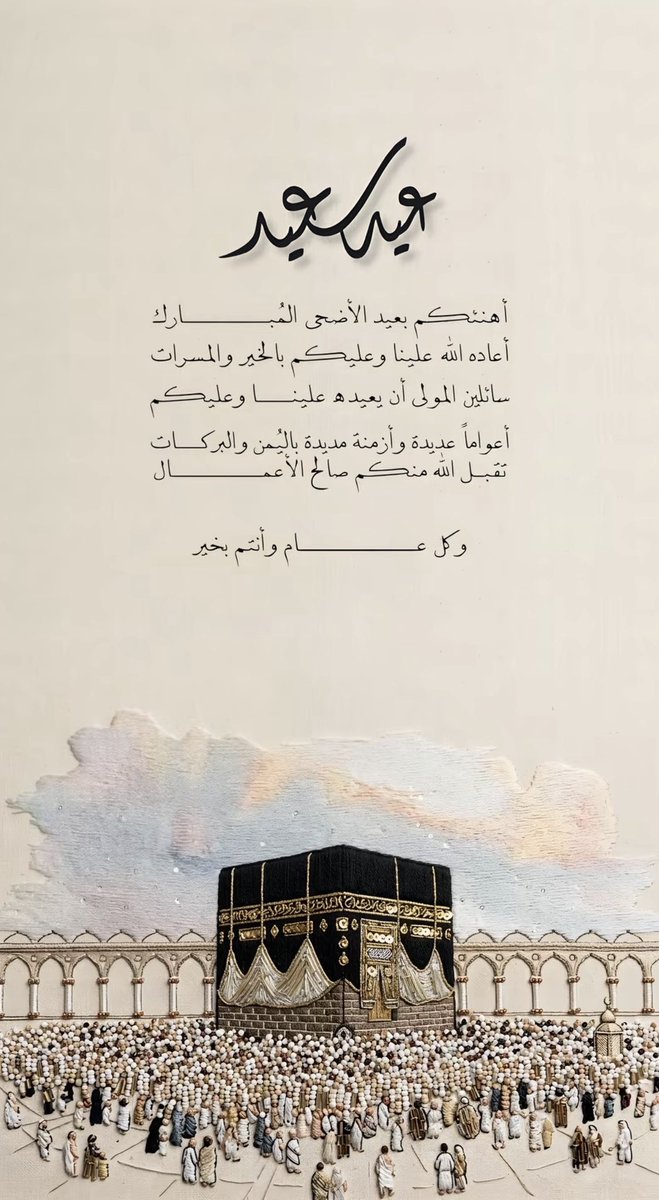 عيد سعيد
أهنئكم بعيد الأضحى المُبـــــــارك
أعاده الله علينا وعليكم بالخير والمسرات
سائلين المولى أن يعيده علينـــا وعليكم
أعواماً عديدة وأزمنة مديدة باليُمن والبركـات
تقبـل الله منكم صالح الأعمـــــــــال
وكل عـــــــــام وأنتم بخير